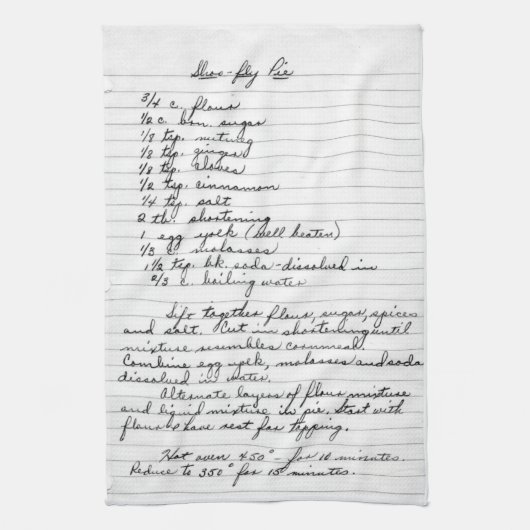 Shoo-fly Pie
3/4 c. flour
1/2 c. brn. sugar
1/8 tsp. nutmeg
1/8 tsp. ginger
1/8 tsp. cloves
1/2 tsp. cinnamon
1/4 tsp. salt
2 tb. shortening
1 egg yolk (well beaten)
1/3 c. molasses
1 1/2 tsp. bk. soda - dissolved in
2/3 c. boiling water
Sift together flour, sugar, spices
and salt. Cut in shortening until
mixture resembles cornmeal.
Combine egg yolk, molasses and soda
dissolved in water.
Alternate layers of flour mixture
and liquid mixture in pie. Start with
flour & have rest for topping.
Hot oven 450° - for 10 minutes.
Reduce to 350° for 15 minutes.